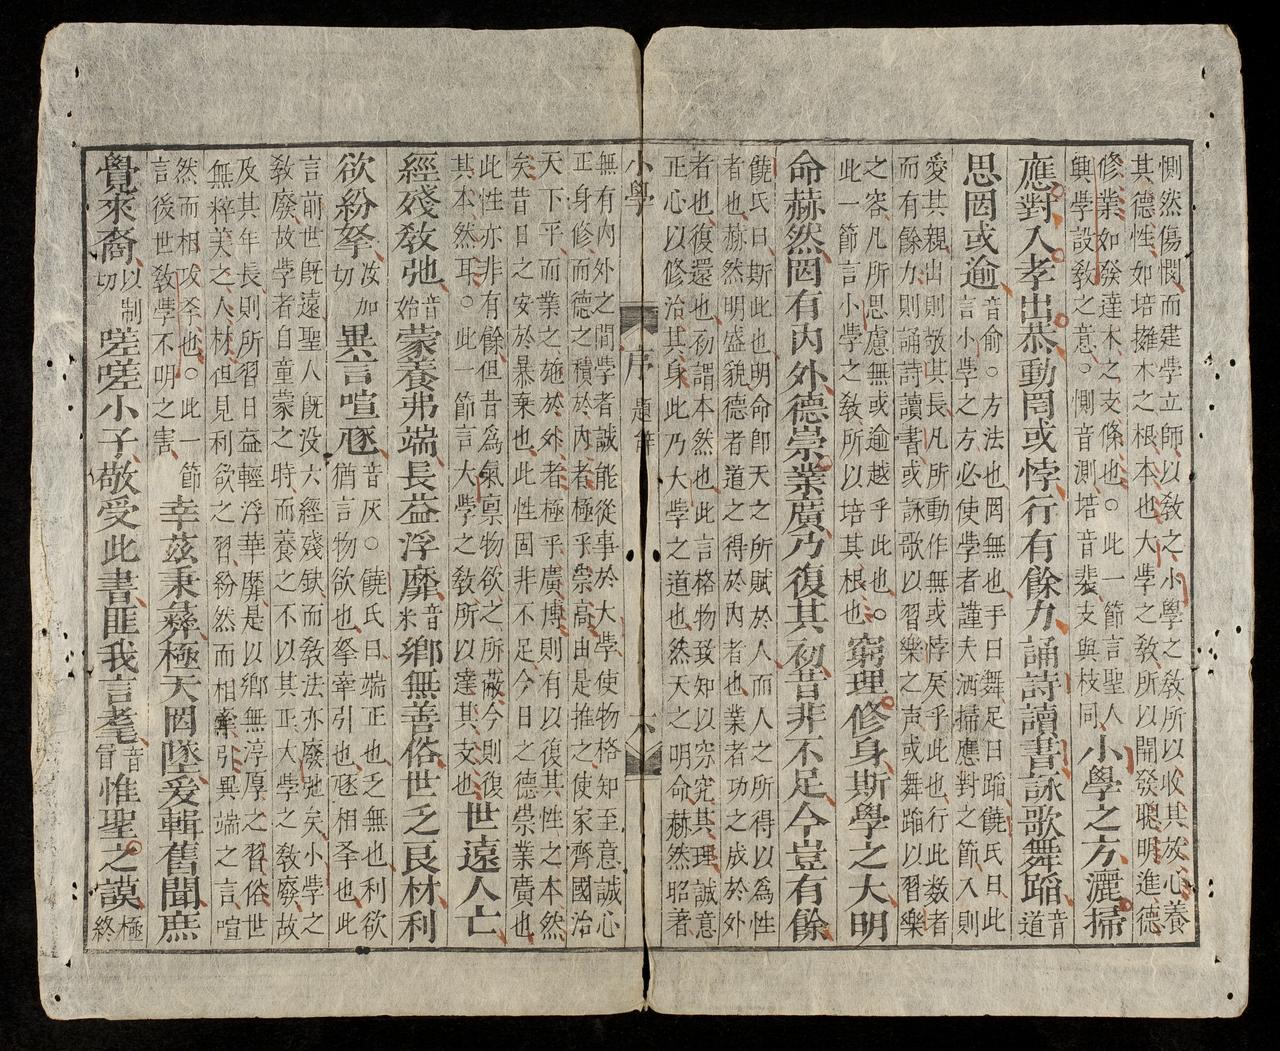 惻然傷憫而建學立師以敎之小學之敎所以收其放心養
其德性如培擁木之根本也大學之敎所以開發聰明進德
修業如發達木之支條也○此一節言聖人
興學設敎之意○惻音測培音裴支與枝同
小學之方灑掃
應對入孝出恭動罔或悖行有餘力誦詩讀書詠歌舞蹈音
道
思罔或逾音俞○方法也罔無也手曰舞足曰蹈饒氏曰此
言小學之方必使學者謹夫洒掃應對之節入則
愛其親出則敬其長凡所動作無或悖戾乎此也行此数者
而有餘力則誦詩讀書或詠歌以習樂之声或舞蹈以習樂
之容凡所思慮無或逾越乎此也○
此一節言小學之敎所以培其根也
窮理修身斯學之大明
命赫然罔有內外德崇業廣乃復其初昔非不足今豈有餘
饒氏曰斯此也明命卽天之所賦於人而人之所得以爲性
者也赫然明盛貌德者道之得於內者也業者功之成於外
者也復還也初謂本然也此言格物致知以窮究其理誠意
正心以修治其身此乃大學之道也然天之明命赫然昭著
小學 序 題辞 六
無有內外之間學者誠能從事於大學使物格知至意誠心
正身修而德之積於內者極乎崇高由是推之使家齊國治
天下平而業之施於外者極乎廣博則有以復其性之本然
矣昔日之安於暴棄也此性固非不足今日之德崇業廣也
此性亦非有餘但昔爲氣禀物欲之所蔽今則復
其本然耳○此一節言大學之敎所以達其支也
世遠人亡
經殘敎弛音
始蒙養弗端長益浮靡音
米鄉無善俗世乏良材利
欲紛拏汝加
切異言喧豗音灰○饒氏曰端正也乏無也利欲
猶言物欲也拏牽引也豗相夅也此
言前世旣遠聖人旣没六經殘缺而敎法亦廢弛矣小學之
敎廢故學者自童蒙之時而養之不以其正大學之敎廢故
及其年長則所習日益輕浮華靡是以鄉無淳厚之習俗世
無粹美之人材但見利欲之習紛然而相牽引異端之言喧
然而相攻夅也○此一節
言後世敎學不明之害
幸茲秉彝極天罔墜爰輯舊聞庶
覺來裔以制
切嗟嗟小子敬受此書匪我言耄音
冒惟聖之謨極
終